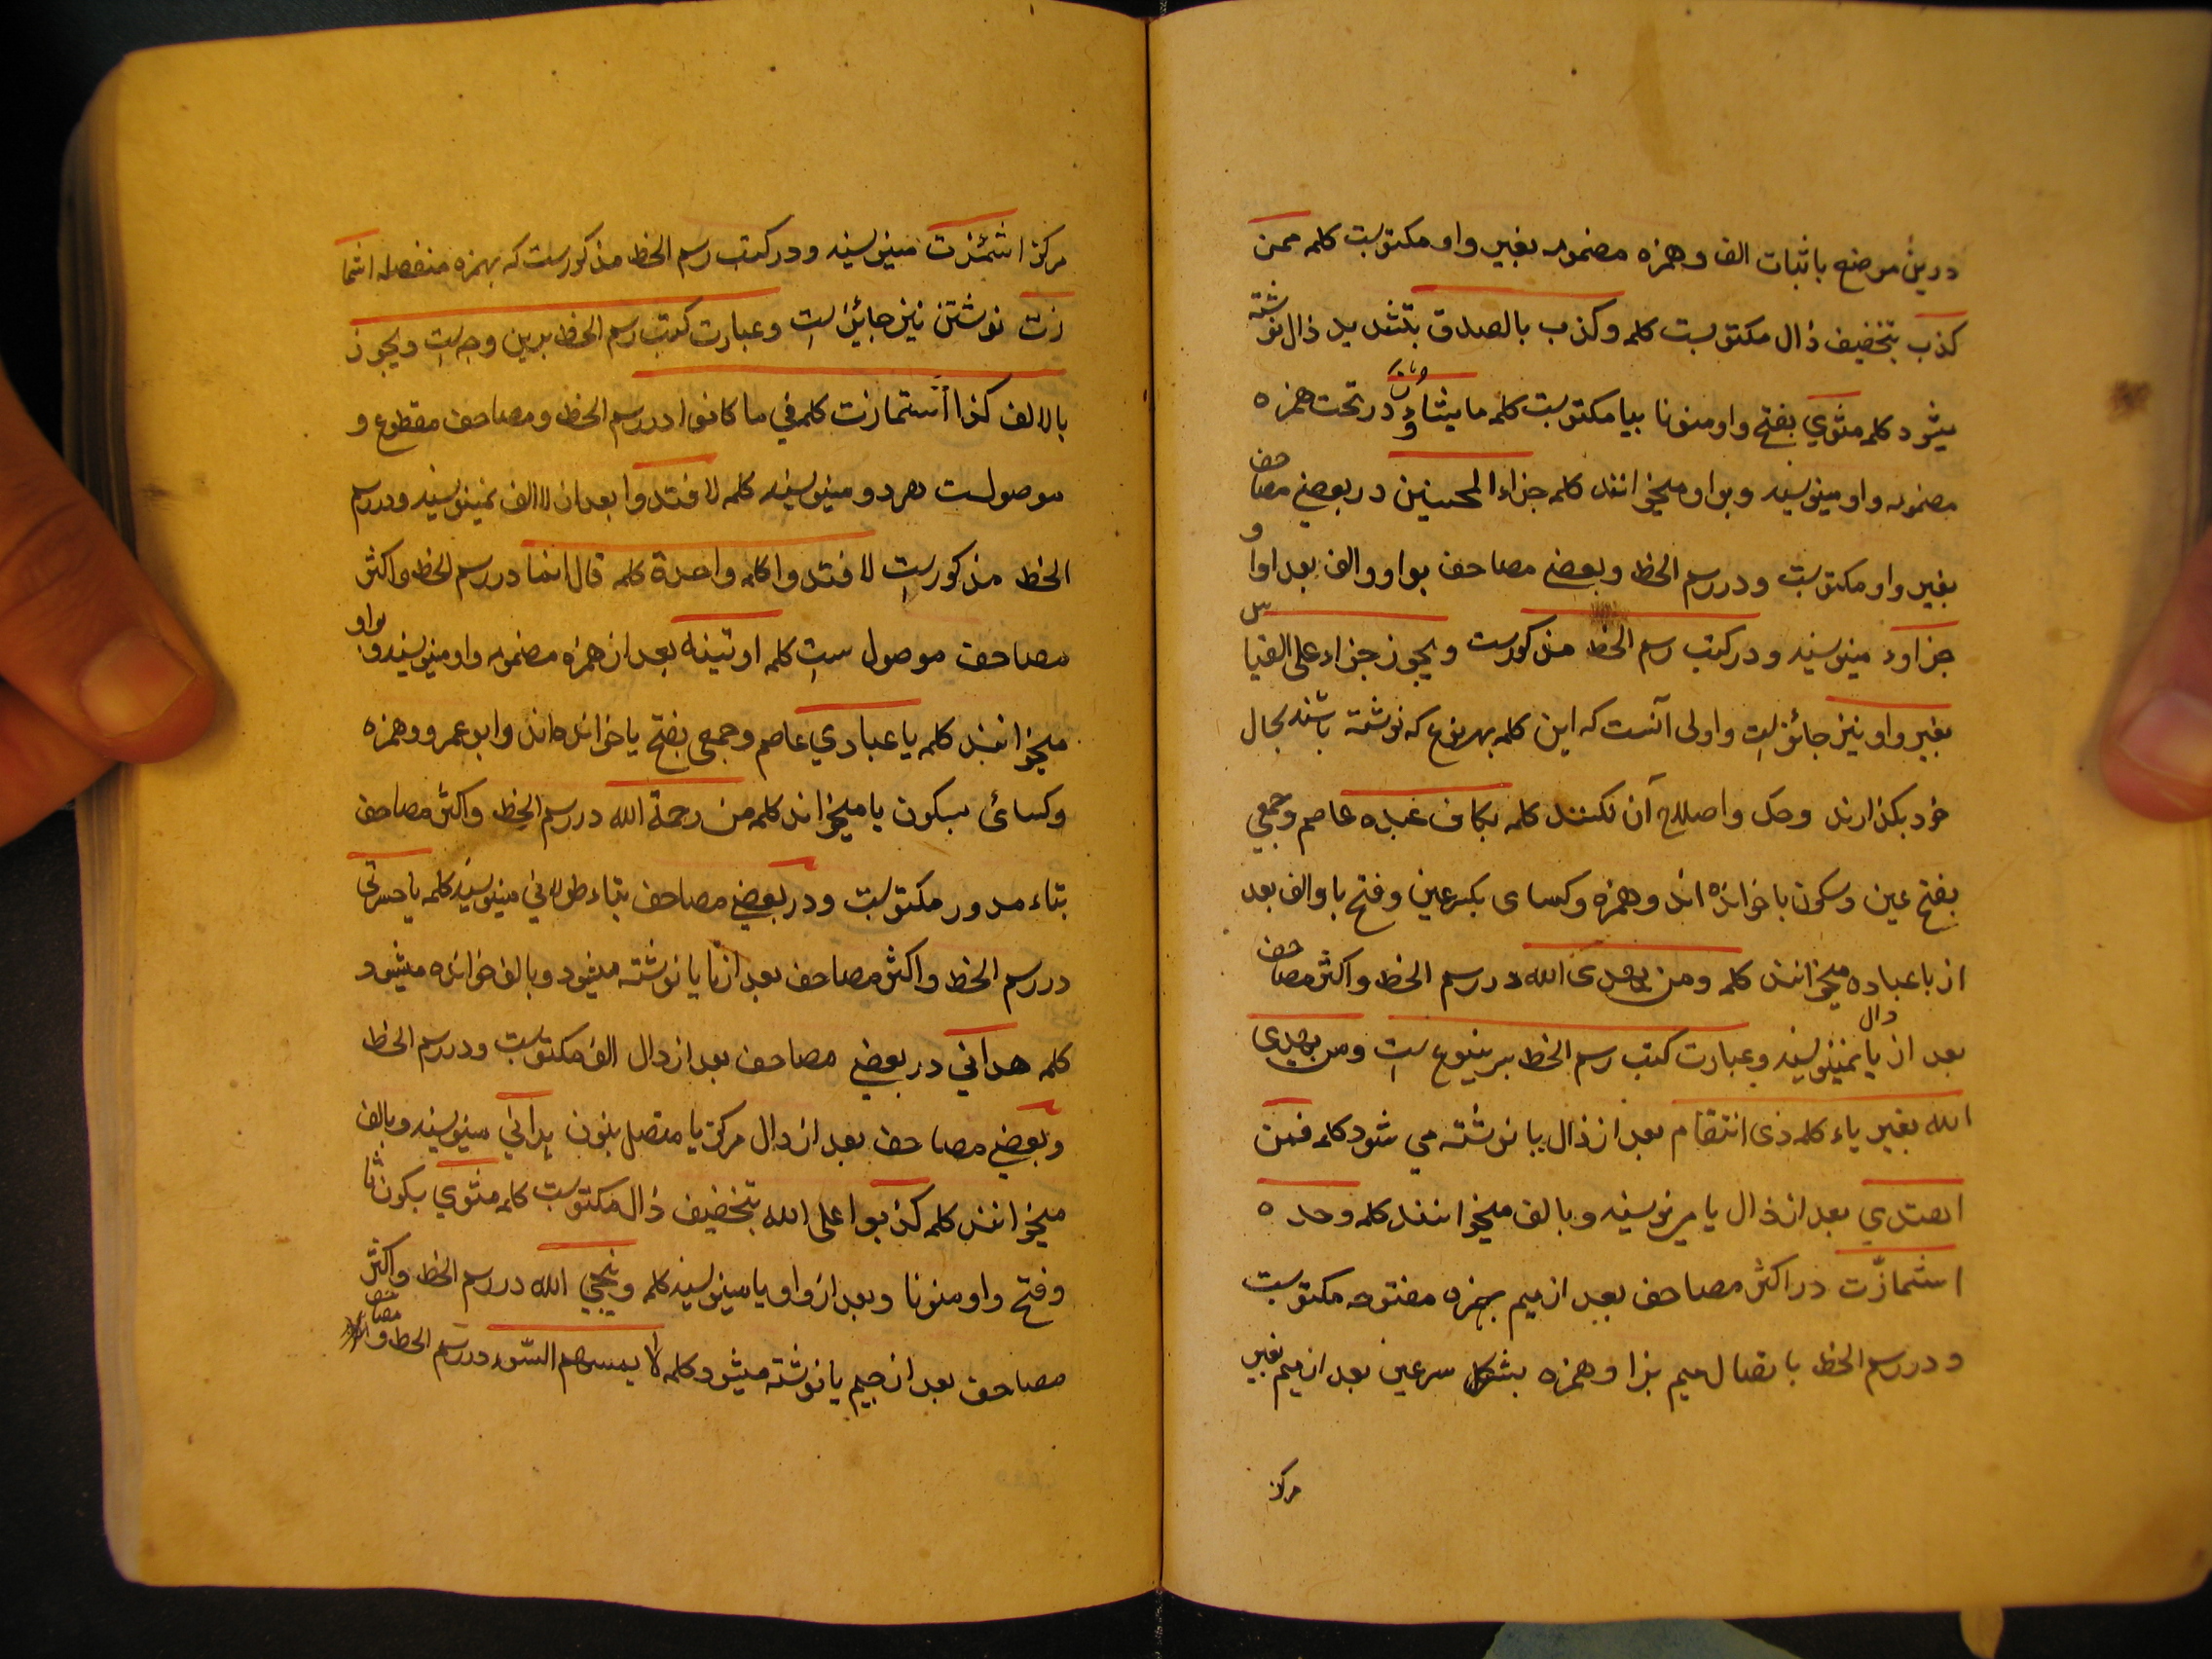 درین موضع باثبات الف و همزه مضمومه بغیر واو مکتوبست کلمه ممن
کذب بتخفیف ذال مکتوبست کلمه وکذب بالصدق بتشدید ذال نوشته
میشود کلمه مثوي بفتح واو منونا بیا مکتوبست کلمه ما یشاؤن در تحت همزه
مضمومه واو مینویسند و بواو میخوانند کلمه جزاء المحسنین در بعضی مصاحف
بغیر واو مکتوبست و در رسم الخط و بعضی مصاحف بواو و الف بعد او
جزاود مینویسند و در کتب رسم الخط مذکورست ویجوز جزاء علی القیاس
بغیر واو نیز جائزاست و اولی آنست که این کلمه بهر نوع که نوشته باشند بحال
خود بکذارند و حک و اصلاح آن نکنند کلمه بکاف عبده عاصم و جمعی
بفتح عین و سکون با خوانده اند و همزه و کسای بکسر عین و فتح با و الف بعد
از با عباده میخوانند کلمه ومن یهدی الله در رسم الخط و اکثر مصاحف
بعد از دال یا نمینویسند و عبارت کتب رسم الخط برینوع است ومن یهدی
الله بغیر یاء کلمه ذی انتقام بعد از ذال یا نوشته می شود کلمه فمن
اهتدي بعد از ذال یا مینویسند و بالف میخوانند کلمه وحده
اشمازّت در اکثر مصاحف بعد از میم بهمزه مفتوحه مکتوبست
و در رسم الخط باتصال میم بزا و همزه بشکل سرعین بعد از میم بغیر
مرکز
مرکز اشمئزت مینویسند و در کتب رسم الخط مذکورست که بهمزه منفصله اشما
زت نوشتن نیز جائزاست و عبارت کتب رسم الخط بدین وجه است ویجوز
بالالف کذا أشمازت کلمه في ما کانوا در رسم الخط و مصاحف مقطوع و
موصولست هر دو مینویسند کلمه لافتدوا بعد از لا الف نمینویسند و در رسم
الخط مذکورست لافتدوا کله واحدة کلمه قال انما در رسم الخط و اکثر
مصاحف موصول ست کلمه اوتیته بعد از همزه مضمومه واو مینویسند و بواو
میخوانند کلمه یا عبادي عاصم و جمعی بفتح یا خوانده اند و ابوعمرو و همزه
و کسائی بسکون یا میخوانند کلمه من رحمة الله در رسم الخط و اکثر مصاحف
بتاء مدور مکتوبست و در بعضی مصاحف بتاء طولانی مینویسند کلمه یا حسرتی
در رسم الخط و اکثر مصاحف بعد از تا یا نوشته میشود و بالف خوانده میشود
کلمه هداني در بعضی مصاحف بعد از دال الف مکتوبست و در رسم الخط
و بعضی مصاحف بعد از دال مرکز یا متصل بنون هداني مینویسند و بالف
میخوانند کلمه کذبوا علی الله بتخفیف ذال مکتوبست کلمه مثوي بسکون ثا
و فتح واو منونا و بعد از واو یا مینویسند کلمه وینجي الله در رسم الخط و اکثر
مصاحف بعد از جیم یا نوشته میشود کلمه لا یمسهم السّوء در رسم الخط و